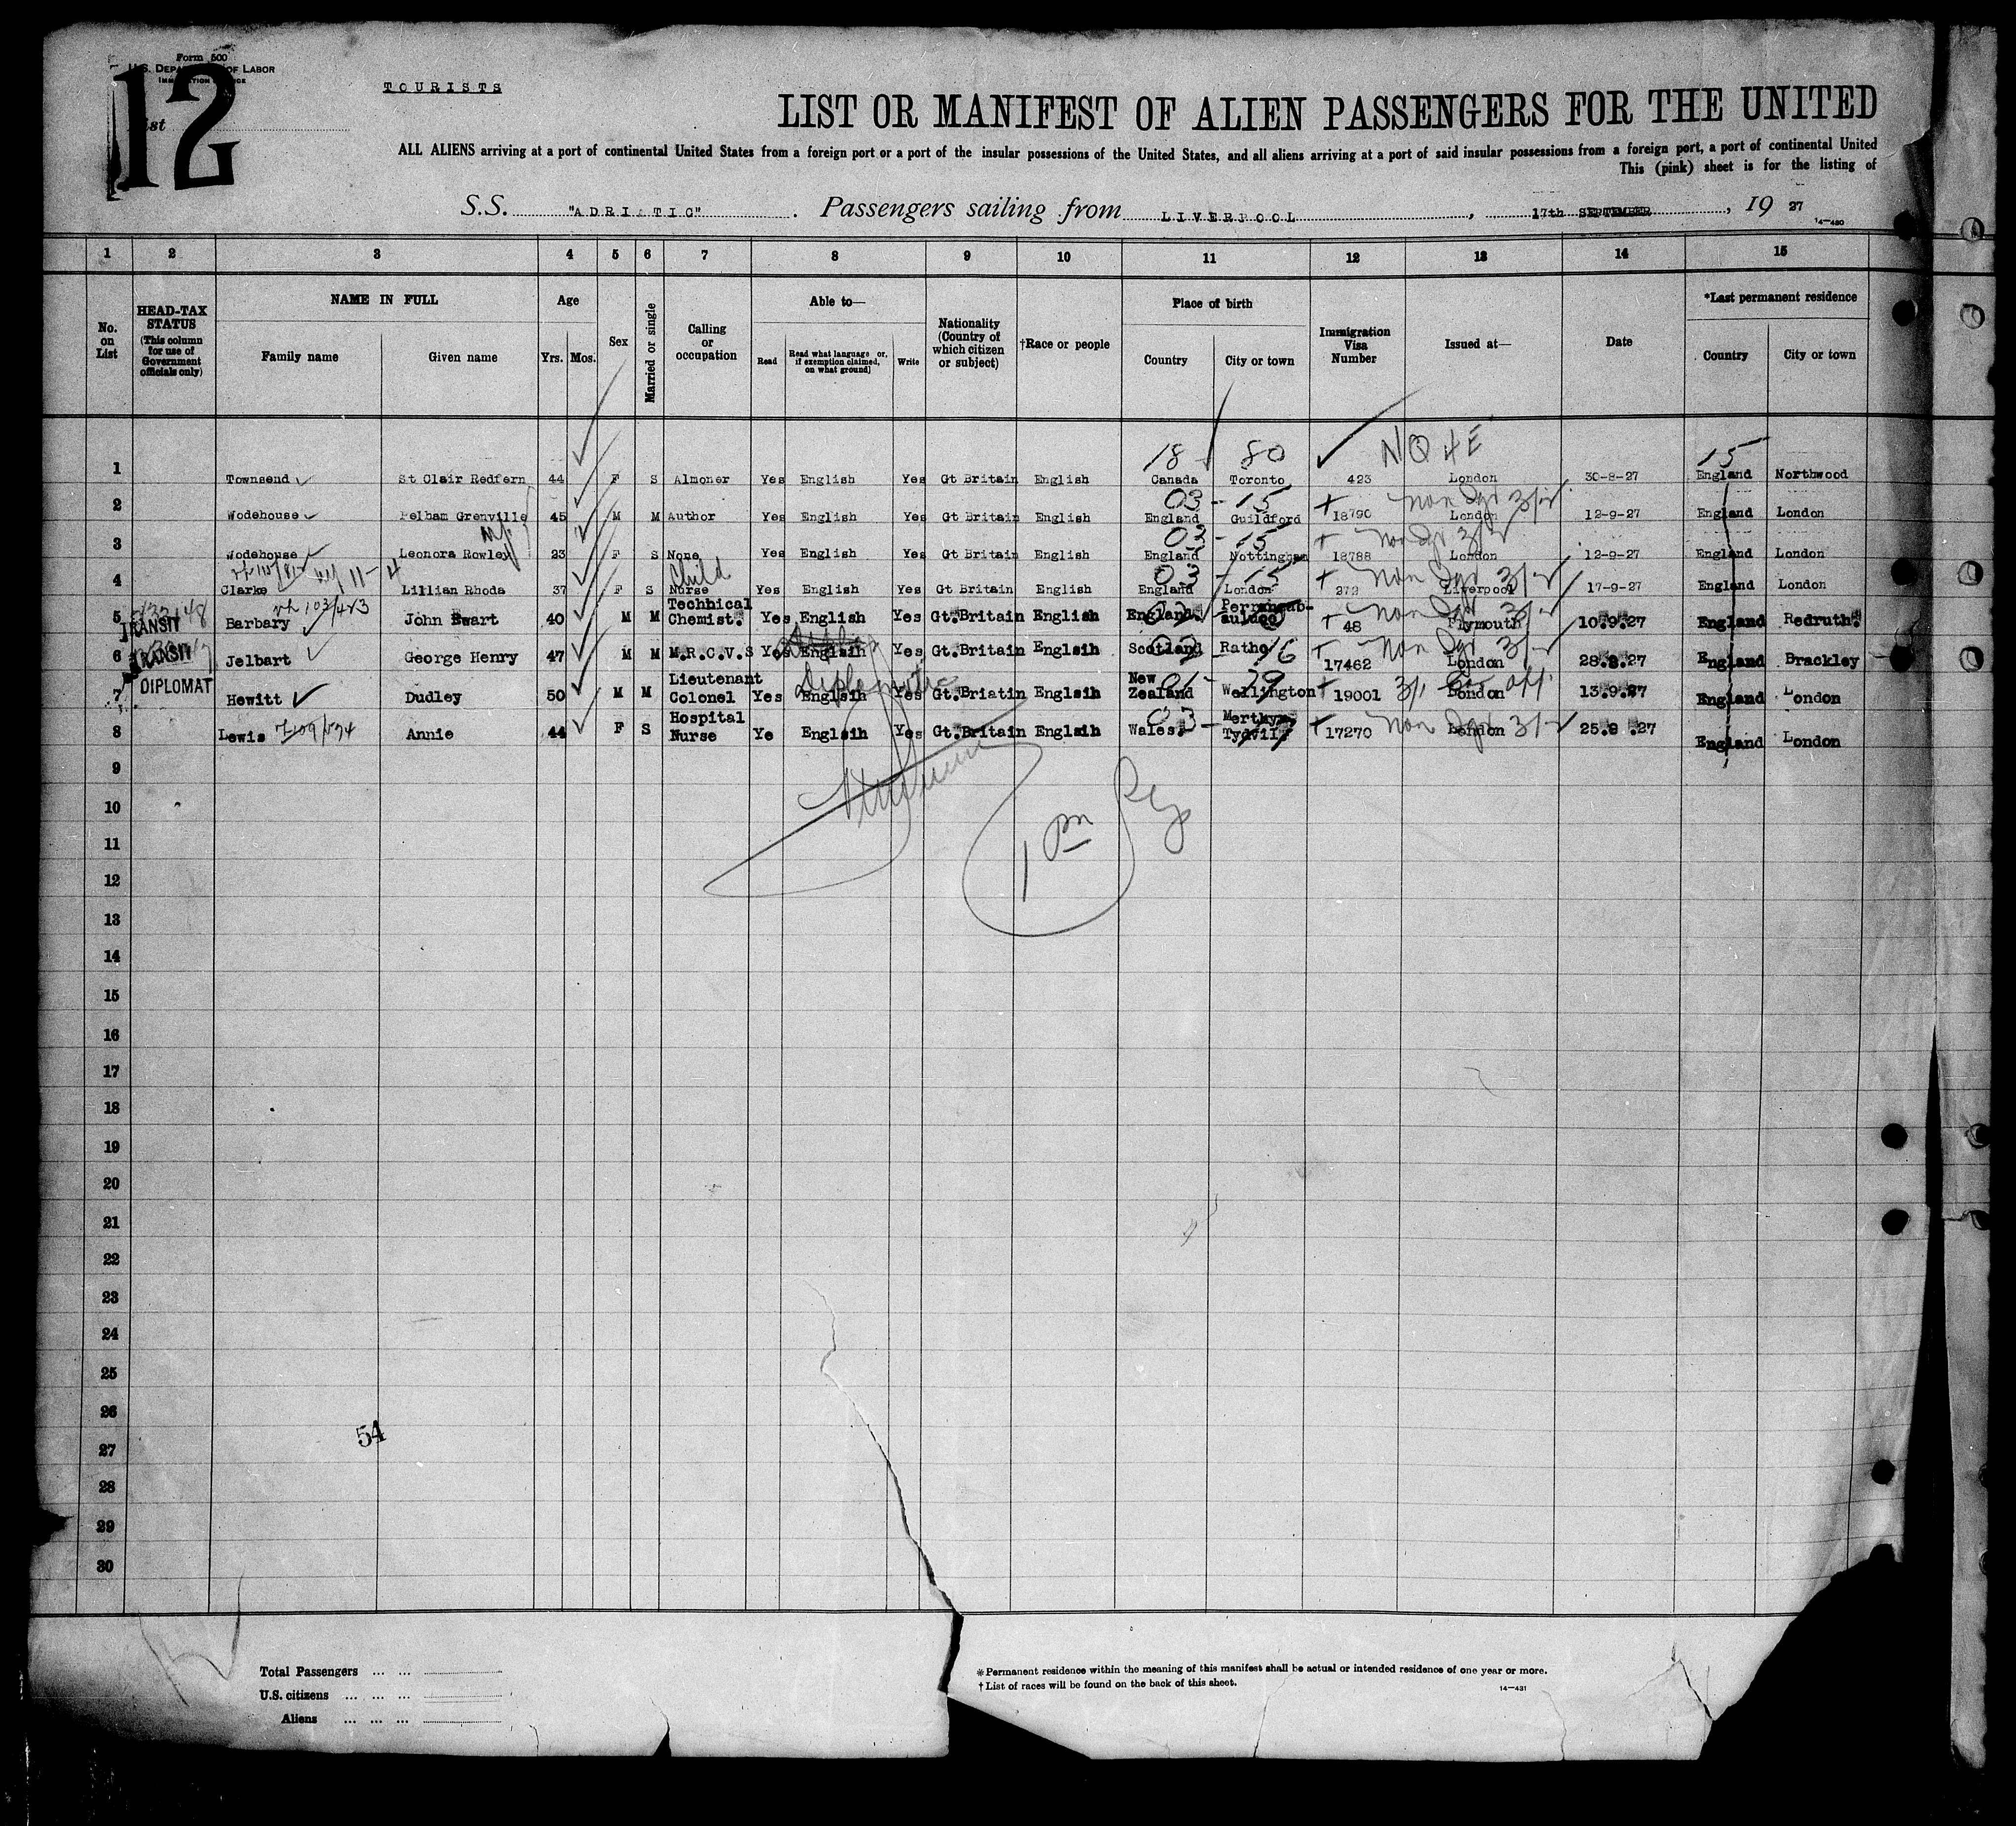 Form 500
U.S. DEPA OF LABOR
12
List
TOURISTS
LIST OR MANIFEST OF ALIEN PASSENGERS FOR THE UNITED
ALL ALIENS arriving at a port of continental United States from a foreign port or a port of the insular possessions of the United States, and all aliens arriving at a port of said insular possessions from a foreign port, a port of continental United
This (pink) sheet is for the listing of
S.S. "ADRIATIC" . Passengers sailing from LIVERPOOL , 17th SEPTEMBER , 19 27
14-430
1 2 3 4 5 6 7 8 9 10 11 12 13 14 15
No. on List
HEAD-TAX STATUS (This column for use of Government officials only)
NAME IN FULL
Family name Given name
Age
Yrs. Mos.
Sex
Married or single
Calling or occupation
Able to—
Read Read what language or, if exemption claimed, on what ground] Write
Nationality (Country of which citizen or subject)
†Race or people
Place of birth
Country City or town
Immigration Visa Number
Issued at—
Date
*Last permanent residence
Country City or town
18 80 NQ 4E 15
1 Townsend St Clair Redfern 44 F S Almoner Yes English Yes Gt Britain English Canada Toronto 423 London 30-8-27 England Northwood
03 - 15
2 Wodehouse Pelham Grenville 45 M M Author Yes English Yes Gt Britain English England Guildford 18790 London 12-9-27 England London
03 - 15
3 Wodehouse Leonora Rowley 23 F S None Yes English Yes Gt Britain English England Nottingham 18788 London 12-9-27 England London
Child 03 - 15
4 Clarke Lillian Rhoda 37 F S Nurse Yes English Yes Gt Britain English England London 272 Liverpool 17-9-27 England London
TRANSIT
5 Barbary John Ewart 40 M M Techhical Chemist. Yes English Yes Gt.Britain English England 48 Plymouth 10.9.27 England Redruth.
TRANSIT
6 Jelbart George Henry 47 M M M.R.C.V.S Yes Englsih Yes Gt.Britain Englsih Scotland Ratho 16 17462 London 28.8.27 England Brackley
DIPLOMAT
Diplomatic
7 Hewitt Dudley 50 M M Lieutenant Colonel Yes Englsih Yes Gt.Briatin Englsih New Zealand Wellington 19001 London 13.9.27 England London
8 Lewis Annie 44 F S Hospital Nurse Ye Englsih Yes Gt.Britain Englsih Wales. Merthyr Tydvil. 17270 London 25.8 .27 England London
9
10
11
12
13
14
15
16
17
18
19
20
21
22
23
24
25
26
54
27
28
29
30
Total Passengers ... ...
U.S. citizens ... ... ...
Aliens ... ... ...
*Permanent residence within the meaning of this manifest shall be actual or intended residence of one year or more.
†List of races will be found on the back of this sheet.
14-431